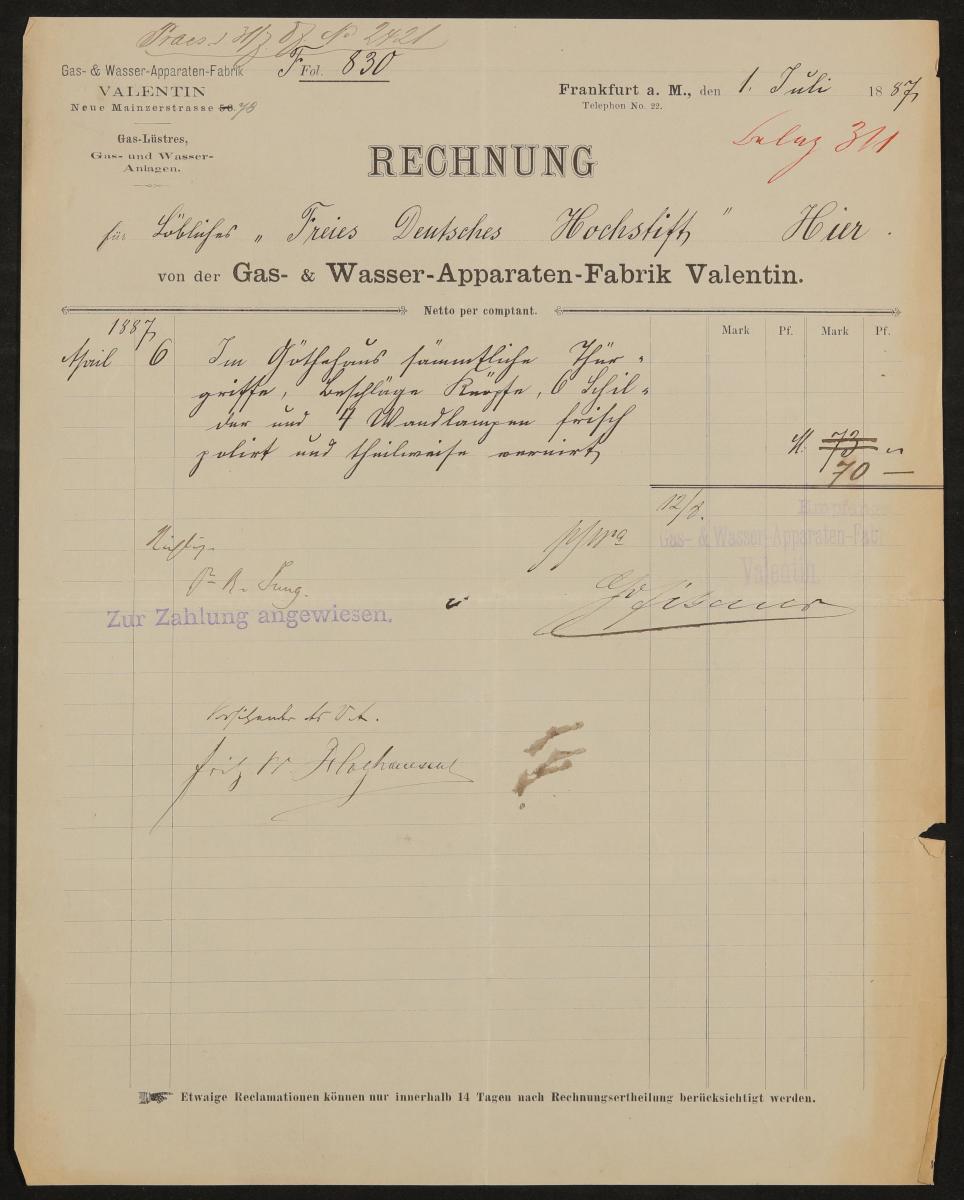 Praes. 31/7 87. No 2421
Gas- & Wasser-Apparaten-Fabrik
VALENTIN
Neue Mainzerstrasse 56. 78
F Fol. 830
Frankfurt a. M., den 1. Juli 1887
Telephon No. 22.
Gas-Lüstres,
Gas- und Wasser-
Anlagen.
Beleg 311
RECHNUNG
für Löbliches „Freies Deutsches Hochstift" Hier.
von der Gas- & Wasser-Apparaten-Fabrik Valentin.
Netto per comptant.
Mark Pf. Mark Pf.
1887
April 6 Im Göthehaus sämmtliche Thür-
griffe, Beschläge Knöpfe, 6 Schil-
der und 4 Wandlampen frisch
polirt und theilweise vernirt M. 73 "
70 —
12/8.
Gas- & Wasser-Apparaten-Fabr
Valentin.
Richtig.
Dr. O. Jung.
Zur Zahlung angewiesen.
Vorsitzender des V. A.
Etwaige Reclamationen können nur innerhalb 14 Tagen nach Rechnungsertheilung berücksichtigt werden.